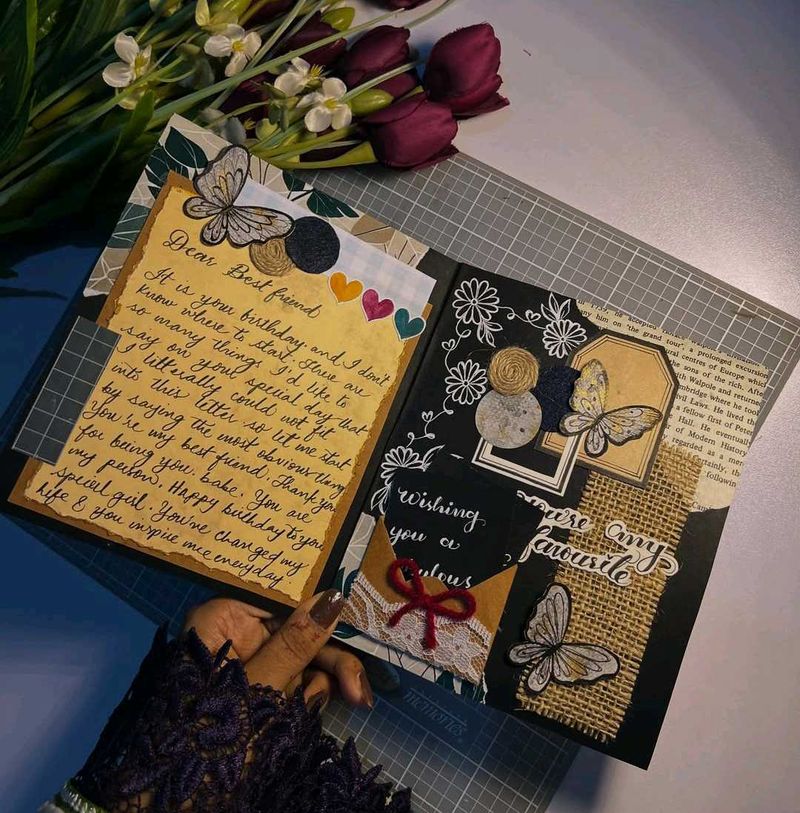 Dear Best friend
It is your birthday and I don't
know where to start. There are
so many things I'd like to
say on your special day that
I litterally could not fit
into this letter so let me start
by saying the most obvious thing
You're my best friend. Thank you
for being you. babe. You are
my person. Happy birthday to you
special girl. You've changed my
life & you inspire me everyday
1739, he accepted
him on 'the grand tour', a prolonged
centres of Europe which
the sons of the rich.
with Walpole and
where he took
Civil Laws. He lived
a fellow first of
Hall. He
of Modern History
regarded as a
the
Wishing
you a
you're my
favourite